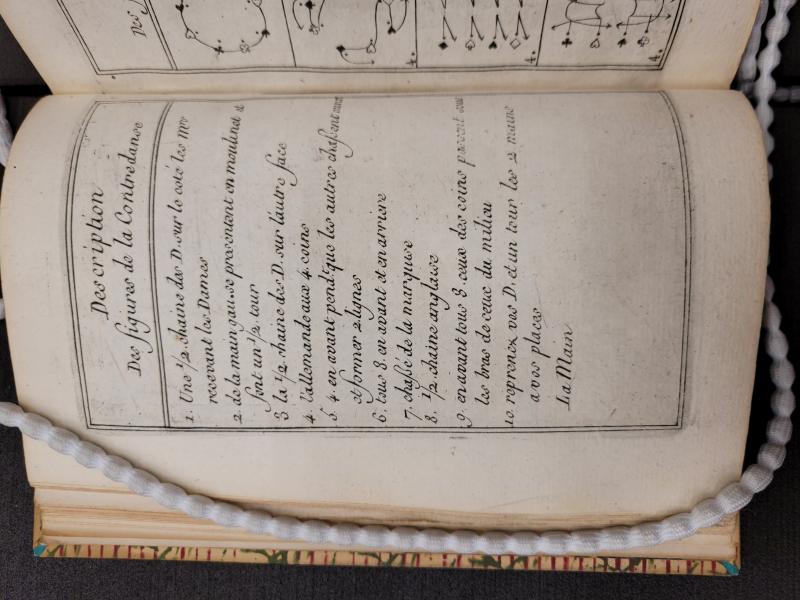 Description
Des figures de la Contredanse
1. Une 1/2 chaine des D. sur le coté les Mrs
recevant les Dames
2. de la main gause presentent en moulinet &
font un 1/2 tour
3 la 1/2 chaine des D. sur l'autre face
4. l'allemande aux 4 coins
5. 4 en avant pendt que les autres chassent
et former 2 lignes
6. tous 8. en avant et en arriere
7. chassé de la marquise
8. 1/2 chaine anglaise
9. en avant tous 8. ceux des coins passent sous
les bras de ceux du milieu
10. reprenez vos D. et un tour les 2 mains
a vos places
La Main
Des
4.
4.
4.